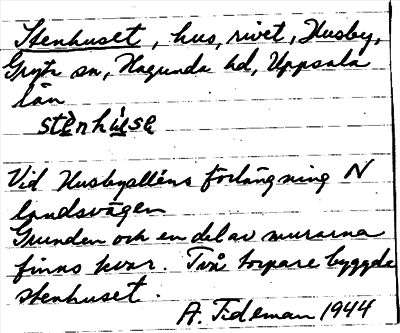 Stenhuset, hus, rivet, Husby,
Gryta sn, Hagunda hd, Uppsala
län
stènhúse
Vid Husbyalléns förlängning N
landsvägen
Grunden och en del av murarna
finns kvar. Två torpare byggde
stenhuset.
A. Tideman 1944